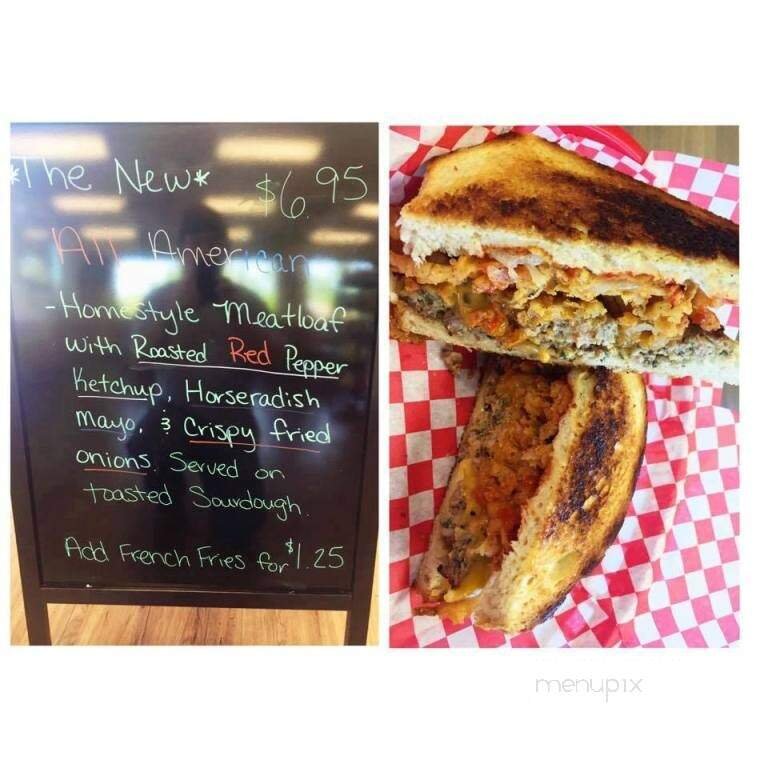 *The New* $6.95
All American
-Homestyle Meatloaf
with Roasted Red Pepper
Ketchup, Horseradish
Mayo, & Crispy fried
onions. Served on
toasted Sourdough.
Add French Fries for $1.25
menupix